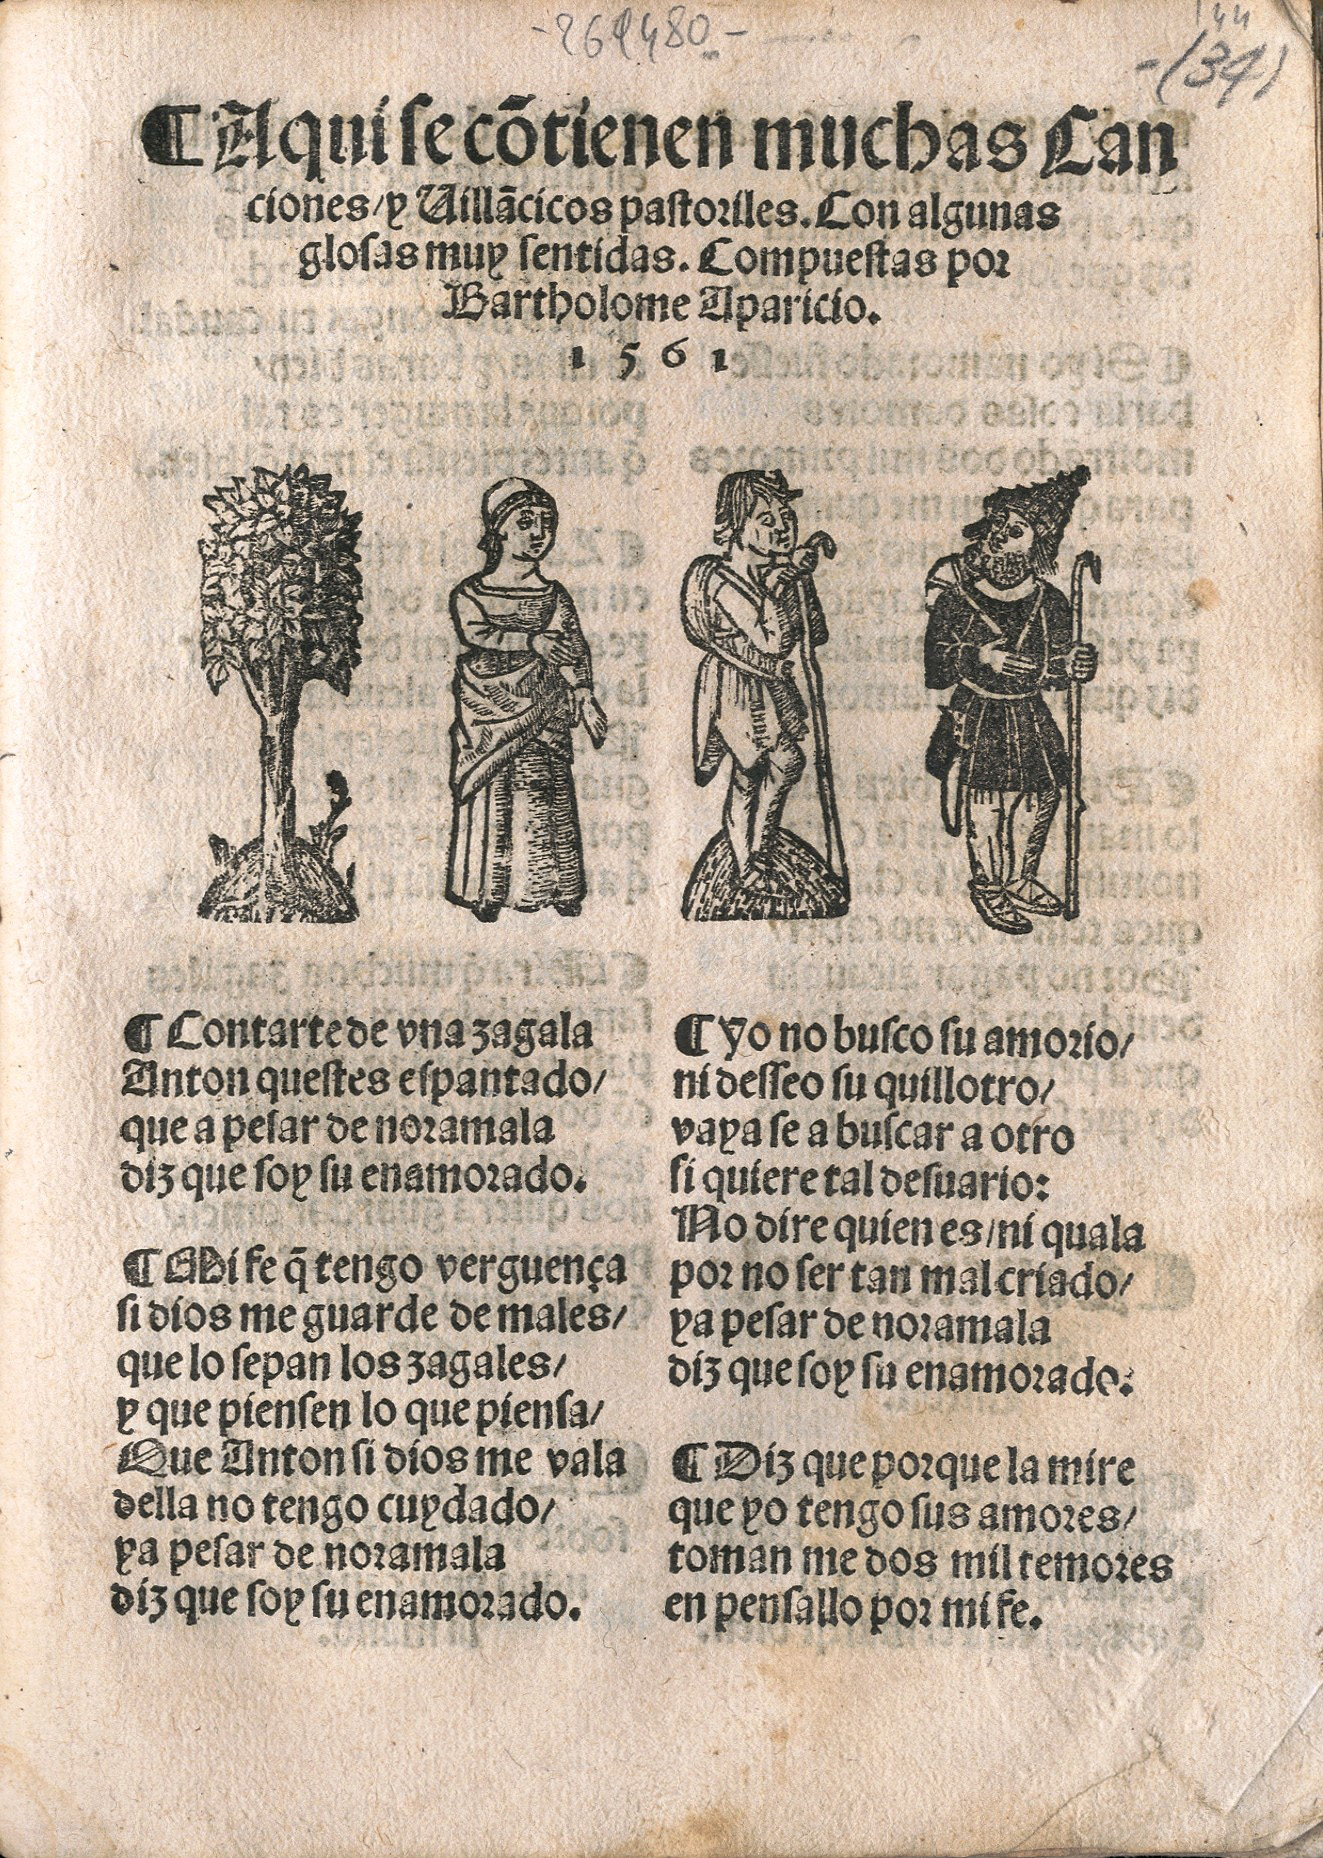 -269480-
144
-(34)
¶ Aqui se cõtienen muchas Can
ciones/y Uillãcicos pastoriles. Con algunas
glosas muy sentidas. Compuestas por
Bartholome Aparicio.
1561
¶ Contarte de vna zagala
Anton questes espantado/
que a pesar de noramala
diz que soy su enamorado.
¶ Mi fe q̃ tengo verguença
si dios me guarde de males/
que lo sepan los zagales/
y que piensen lo que piensa/
Que Anton si dios me vala
della no tengo cuydado/
ya pesar de noramala
diz que soy su enamorado.
¶ Yo no busco su amorio/
ni desseo su quillotro/
vaya se a buscar a otro
si quiere tal desuario:
No dire quien es/ni quala
por no ser tan mal criado/
ya pesar de noramala
diz que soy su enamorado:
¶ Diz que porque la mire
que yo tengo sus amores/
toman me dos mil temores
en pensallo por mi fe.